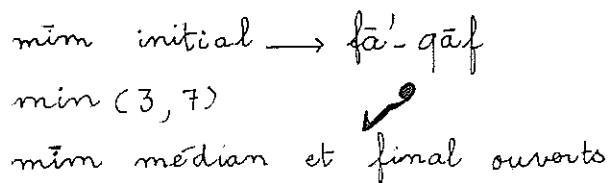 mīm initial → fā'-qāf
min (3, 7)
mīm médian et final ouverts